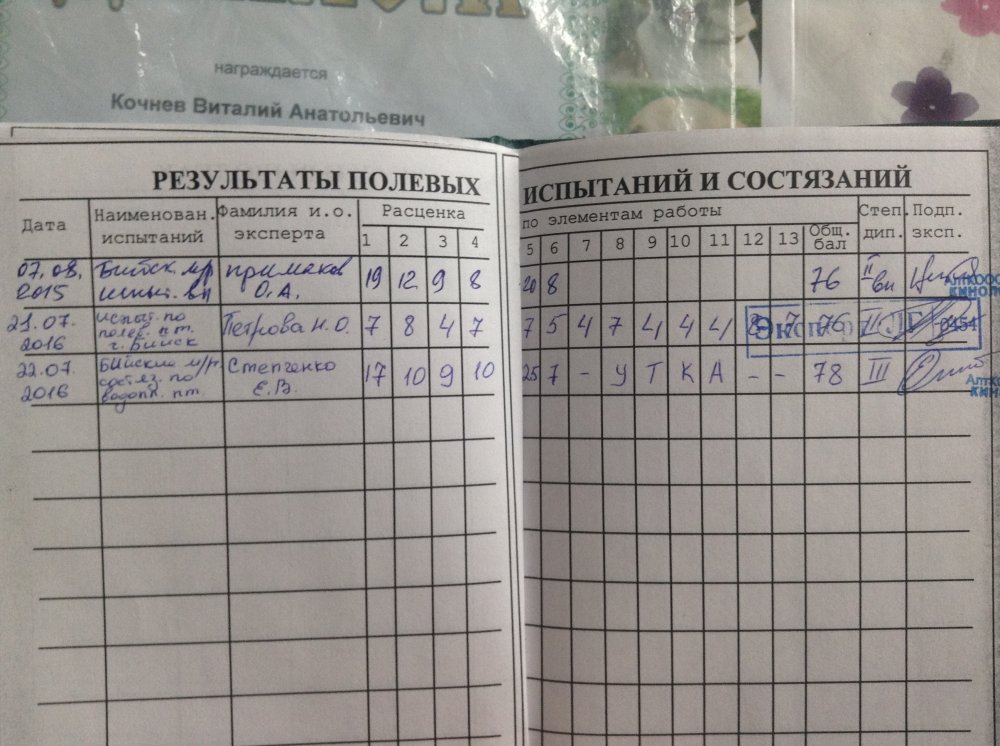 награждается
Кочнев Виталий Анатольевич
РЕЗУЛЬТАТЫ ПОЛЕВЫХ ИСПЫТАНИЙ И СОСТЯЗАНИЙ
Дата Наименован. испытаний Фамилия и.о. эксперта Расценка по элементам работы Общ. бал Степ. дип. Подп. эксп.
1 2 3 4 5 6 7 8 9 10 11 12 13
07.08. Бийск. м/р Примаков 19 12 9 8 20 8 76 II
2015 испыт. вп О.А. вп
21.07. испыт. по Петрова Н.О. 7 8 4 7 7 5 4 7 4 4 4 8 7 76 II
2016 полев. пт.
г. Бийск
Эксперт
22.07. Бийский м/р. Степченко 17 10 9 10 25 7 - У Т К А - - 78 III
2016 состяз. по Е.В.
водопл. пт.